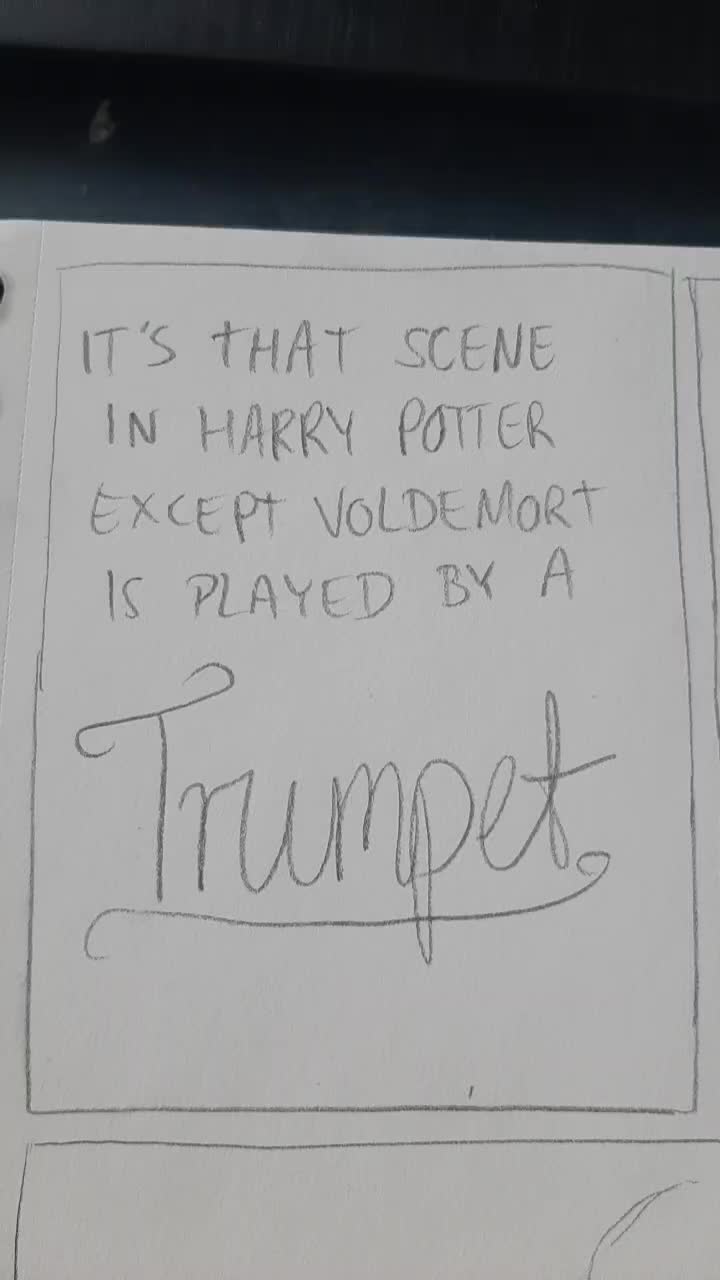 IT'S THAT SCENE
IN HARRY POTTER
EXCEPT VOLDEMORT
IS PLAYED BY A
Trumpet.